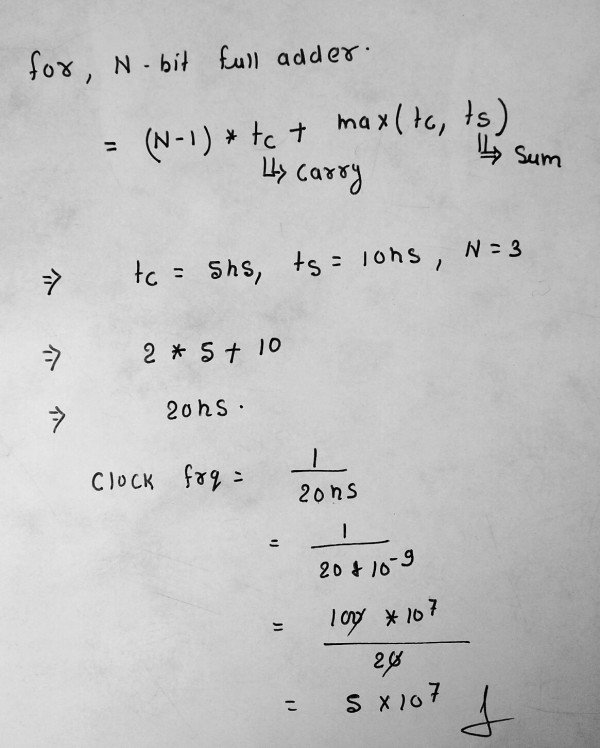 for, N-bit full adder.
= (N-1) * tc + max(tc, ts)
↳> carry ↳> Sum
⇒ tc = 5ns, ts = 10ns, N = 3
⇒ 2 * 5 + 10
⇒ 20ns.
Clock frq = 1/20ns
= 1/20 * 10^-9
= 100 * 10^7/20
= 5 × 10^7